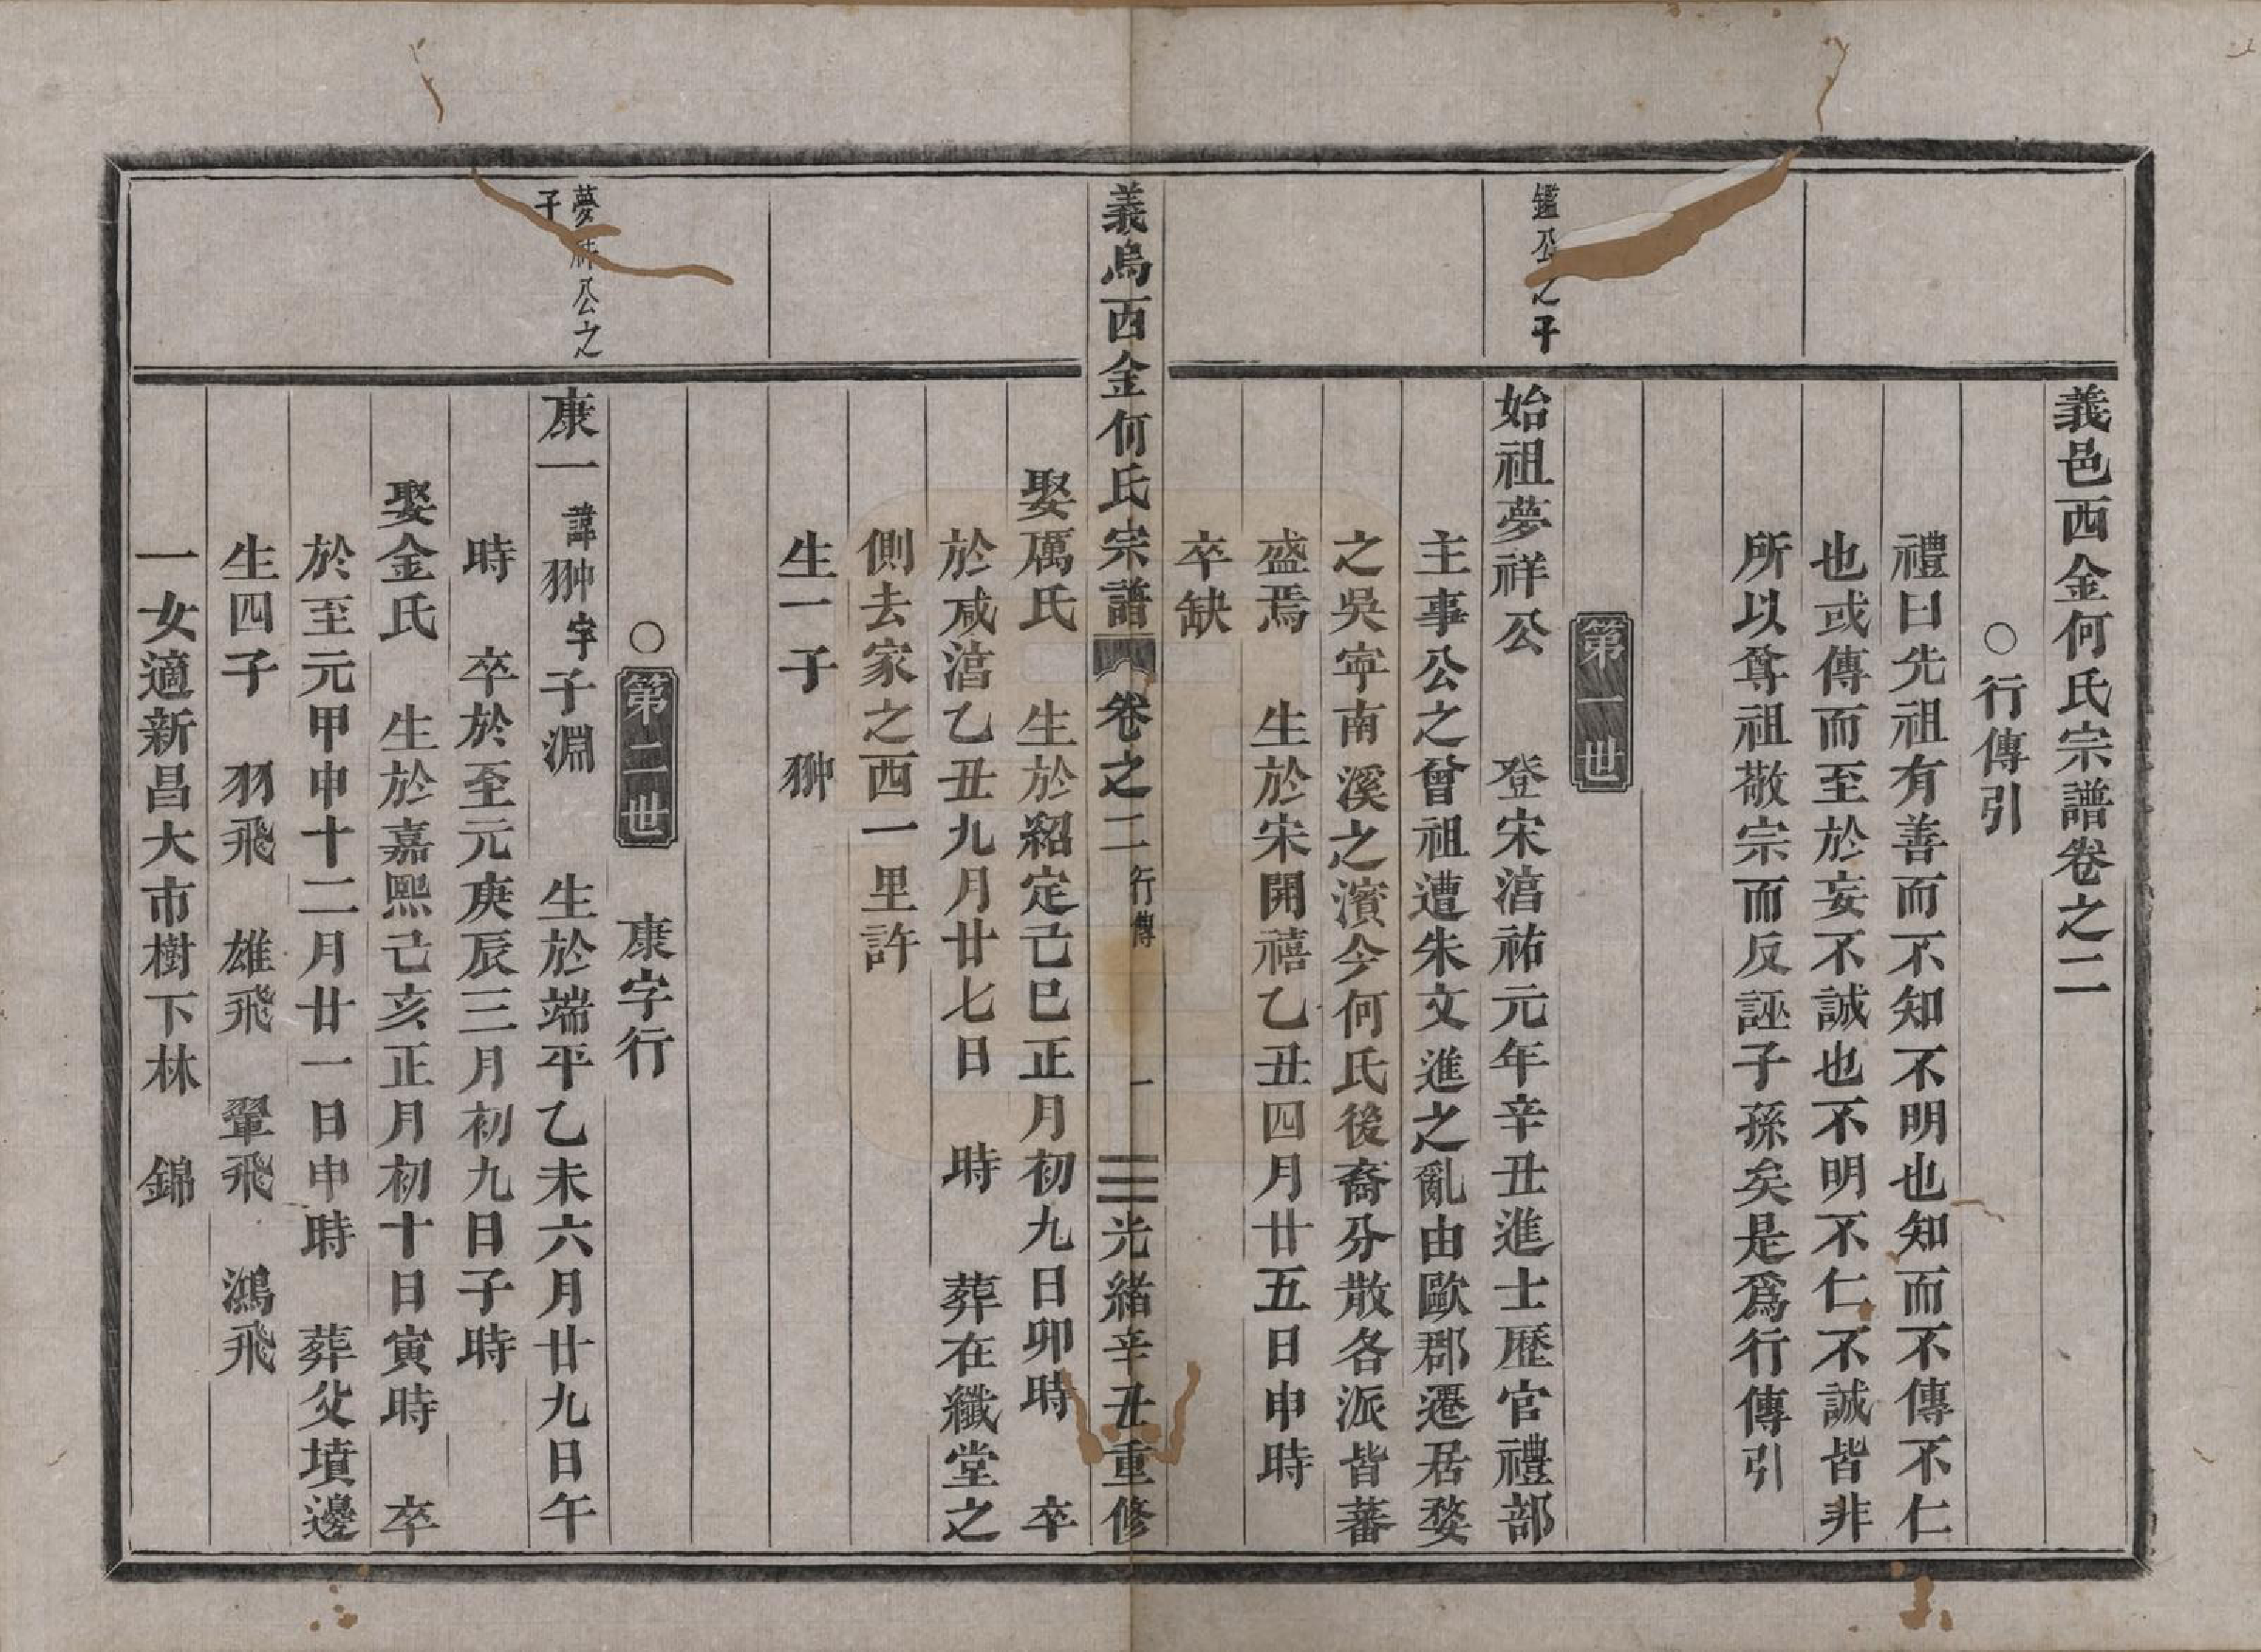 義邑西金何氏宗譜卷之二
○行傳引
禮曰先祖有善而不知不明也知而不傳不仁
也或傳而至於妄不誠也不明不仁不誠皆非
所以尊祖敬宗而反誣子孫矣是爲行傳引
第一世
鑑公之子
始祖夢祥公　登宋湻祐元年辛丑進士歷官禮部
主事公之曾祖遭朱文進之亂由歐郡遷居婺
之吳寜南溪之濱今何氏後裔分散各派皆蕃
盛焉　生於宋開禧乙丑四月廿五日申時
卒缺
義烏西金何氏宗譜　卷之二　行傳　一　光緒辛丑重修
娶厲氏　生於紹定己巳正月初九日卯時　卒
於咸湻乙丑九月廿七日　時　葬在纖堂之
側去家之西一里許
生一子　翀
○第二世　康字行
夢祥公之
子
康一　諱翀字子淵　生於端平乙未六月廿九日午
時　卒於至元庚辰三月初九日子時
娶金氏　生於嘉熙己亥正月初十日寅時　卒
於至元甲申十二月廿一日申時　葬父墳邊
生四子　羽飛　雄飛　翬飛　鴻飛
一女適新昌大市樹下林　錦